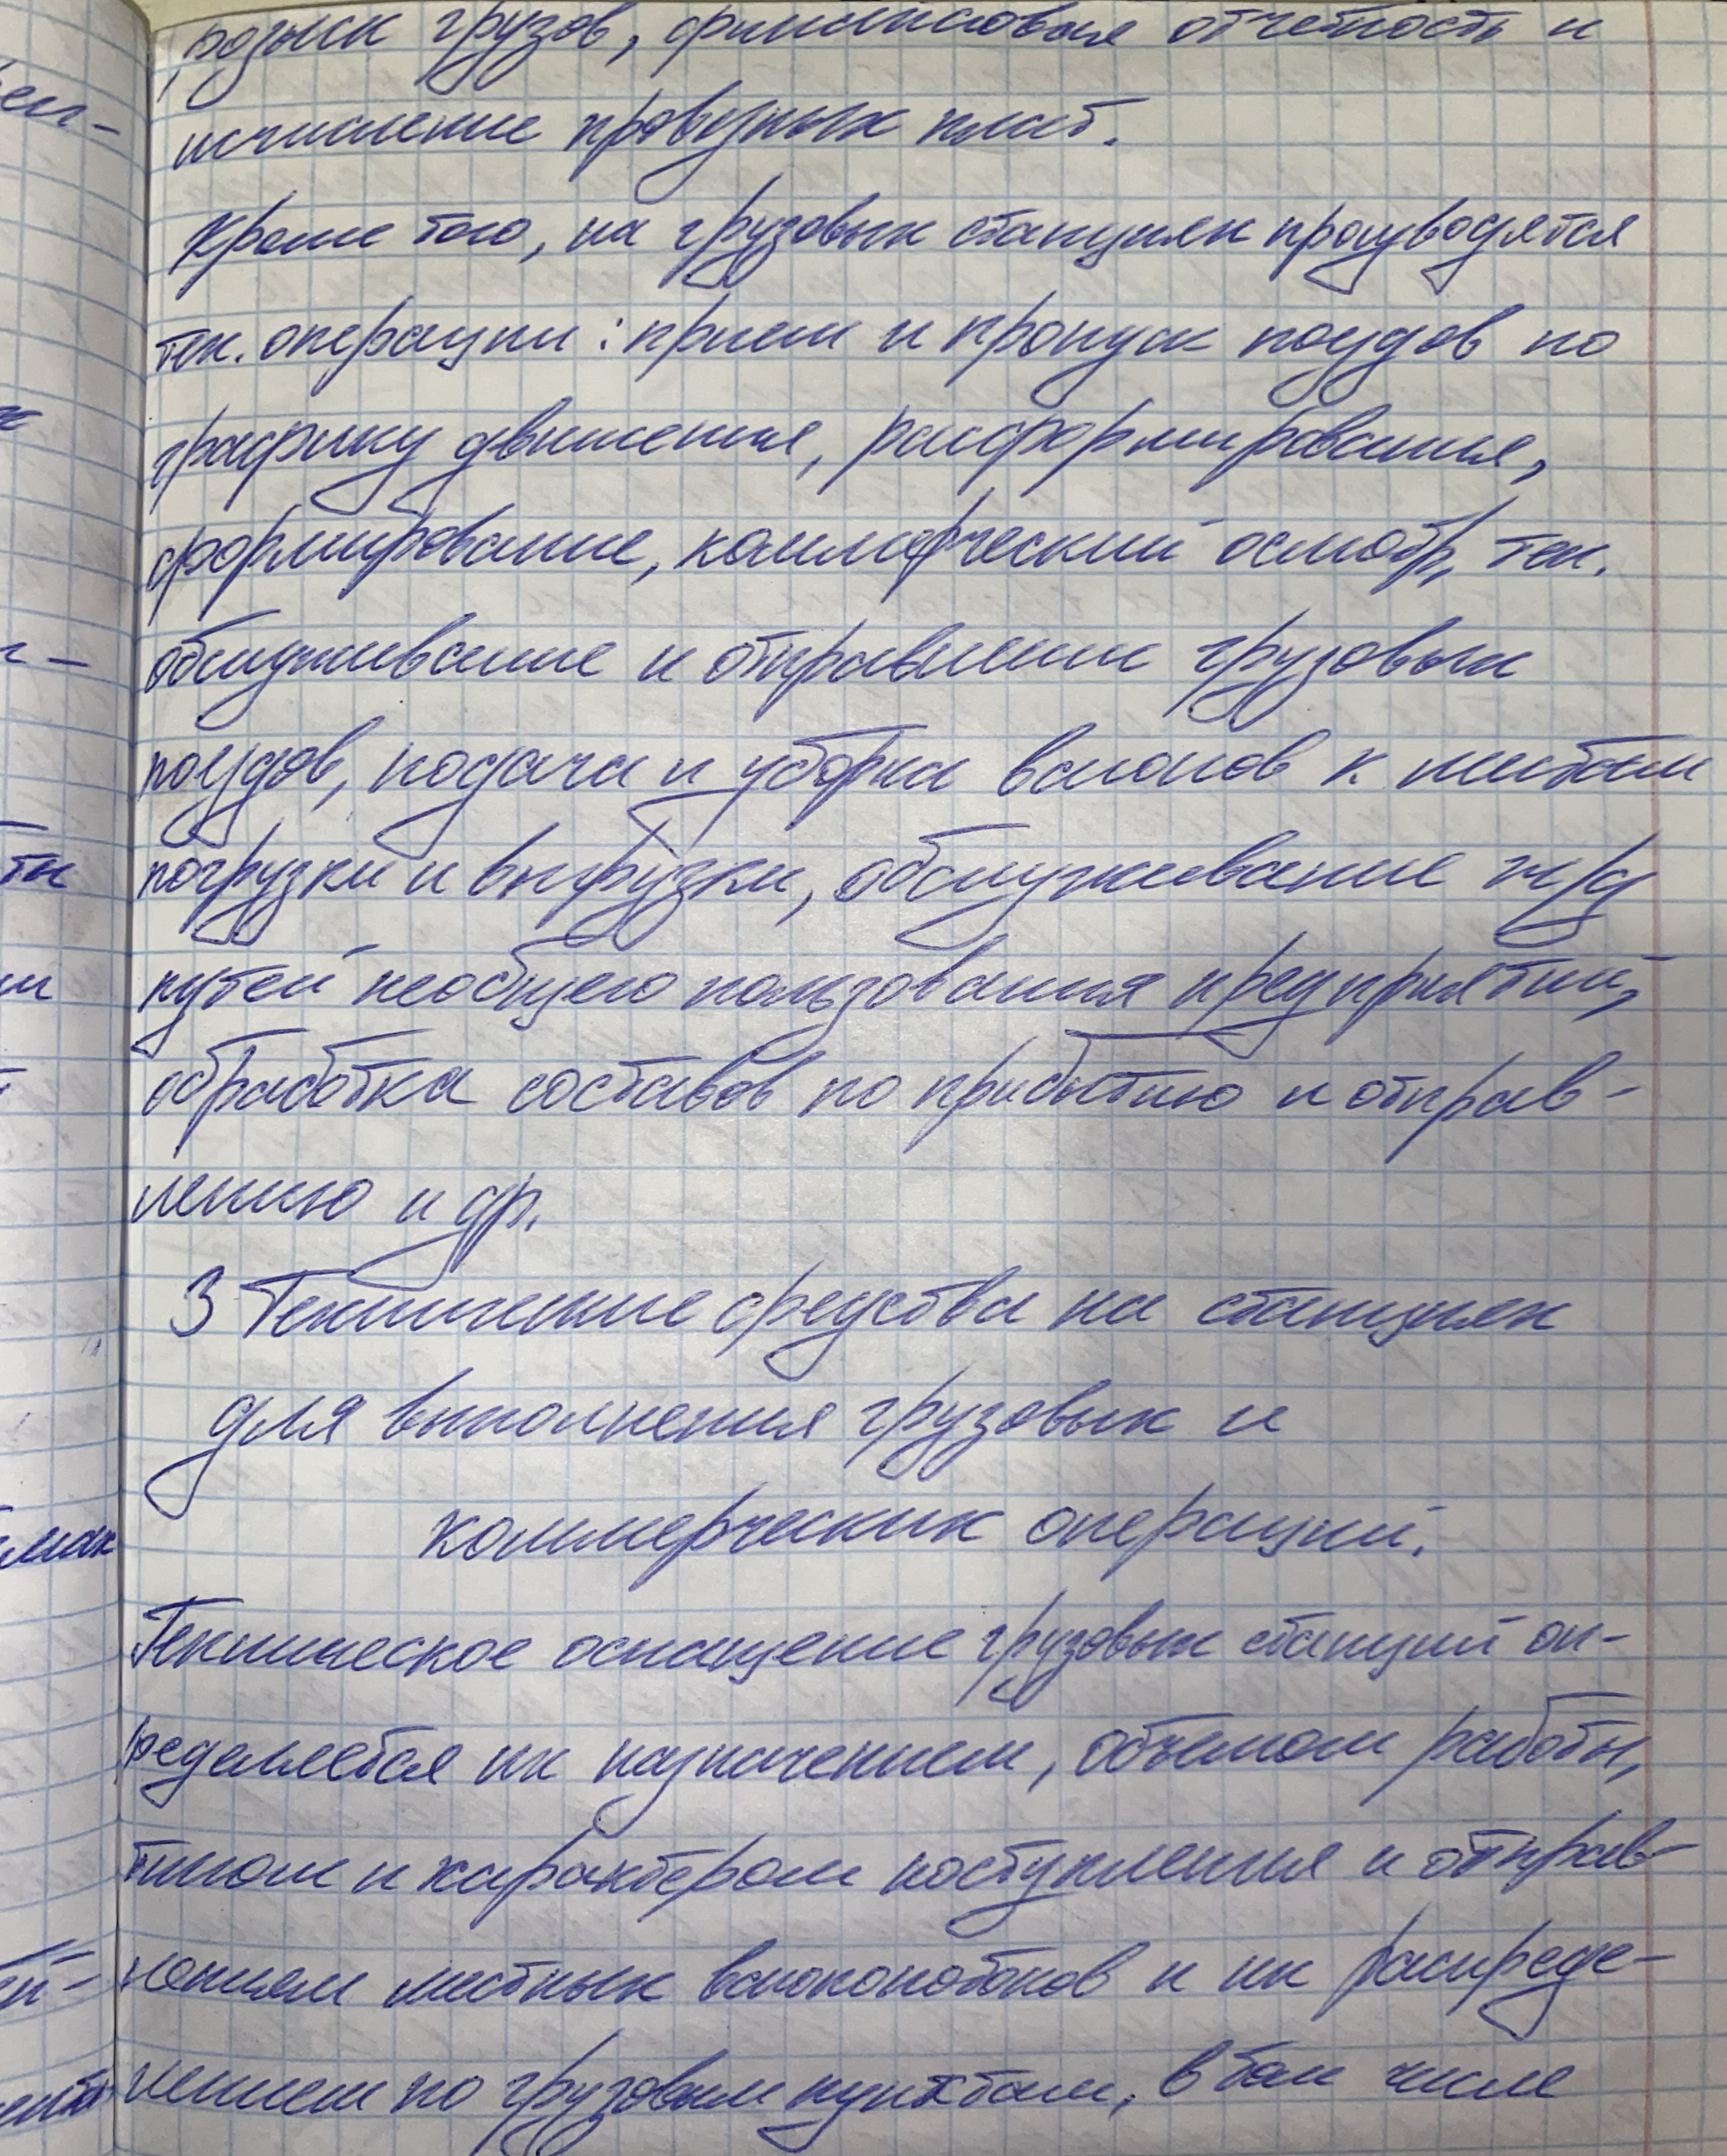 розыск грузов, финансовая отчетность и
исчисление провозных плат.
Кроме того, на грузовых станциях производятся
тех. операции: прием и пропуск поездов по
графику движения, расформирования,
формирование, коммерческий осмотр, тех.
обслуживание и отправлении грузовых
поездов, подача и уборка вагонов к местам
погрузки и выгрузки, обслуживание ж/д
путей необщего пользования предприятий,
обработка составов по прибытию и отправ-
лению и др.
3 Технические средства на станциях
для выполнения грузовых и
коммерческих операций.
Техническое оснащение грузовых станций оп-
ределяется их назначением, объемом работы,
типом и характером поступления и отправ-
лением местных вагонопотоков и их распреде-
лением по грузовым пунктам, в том числе